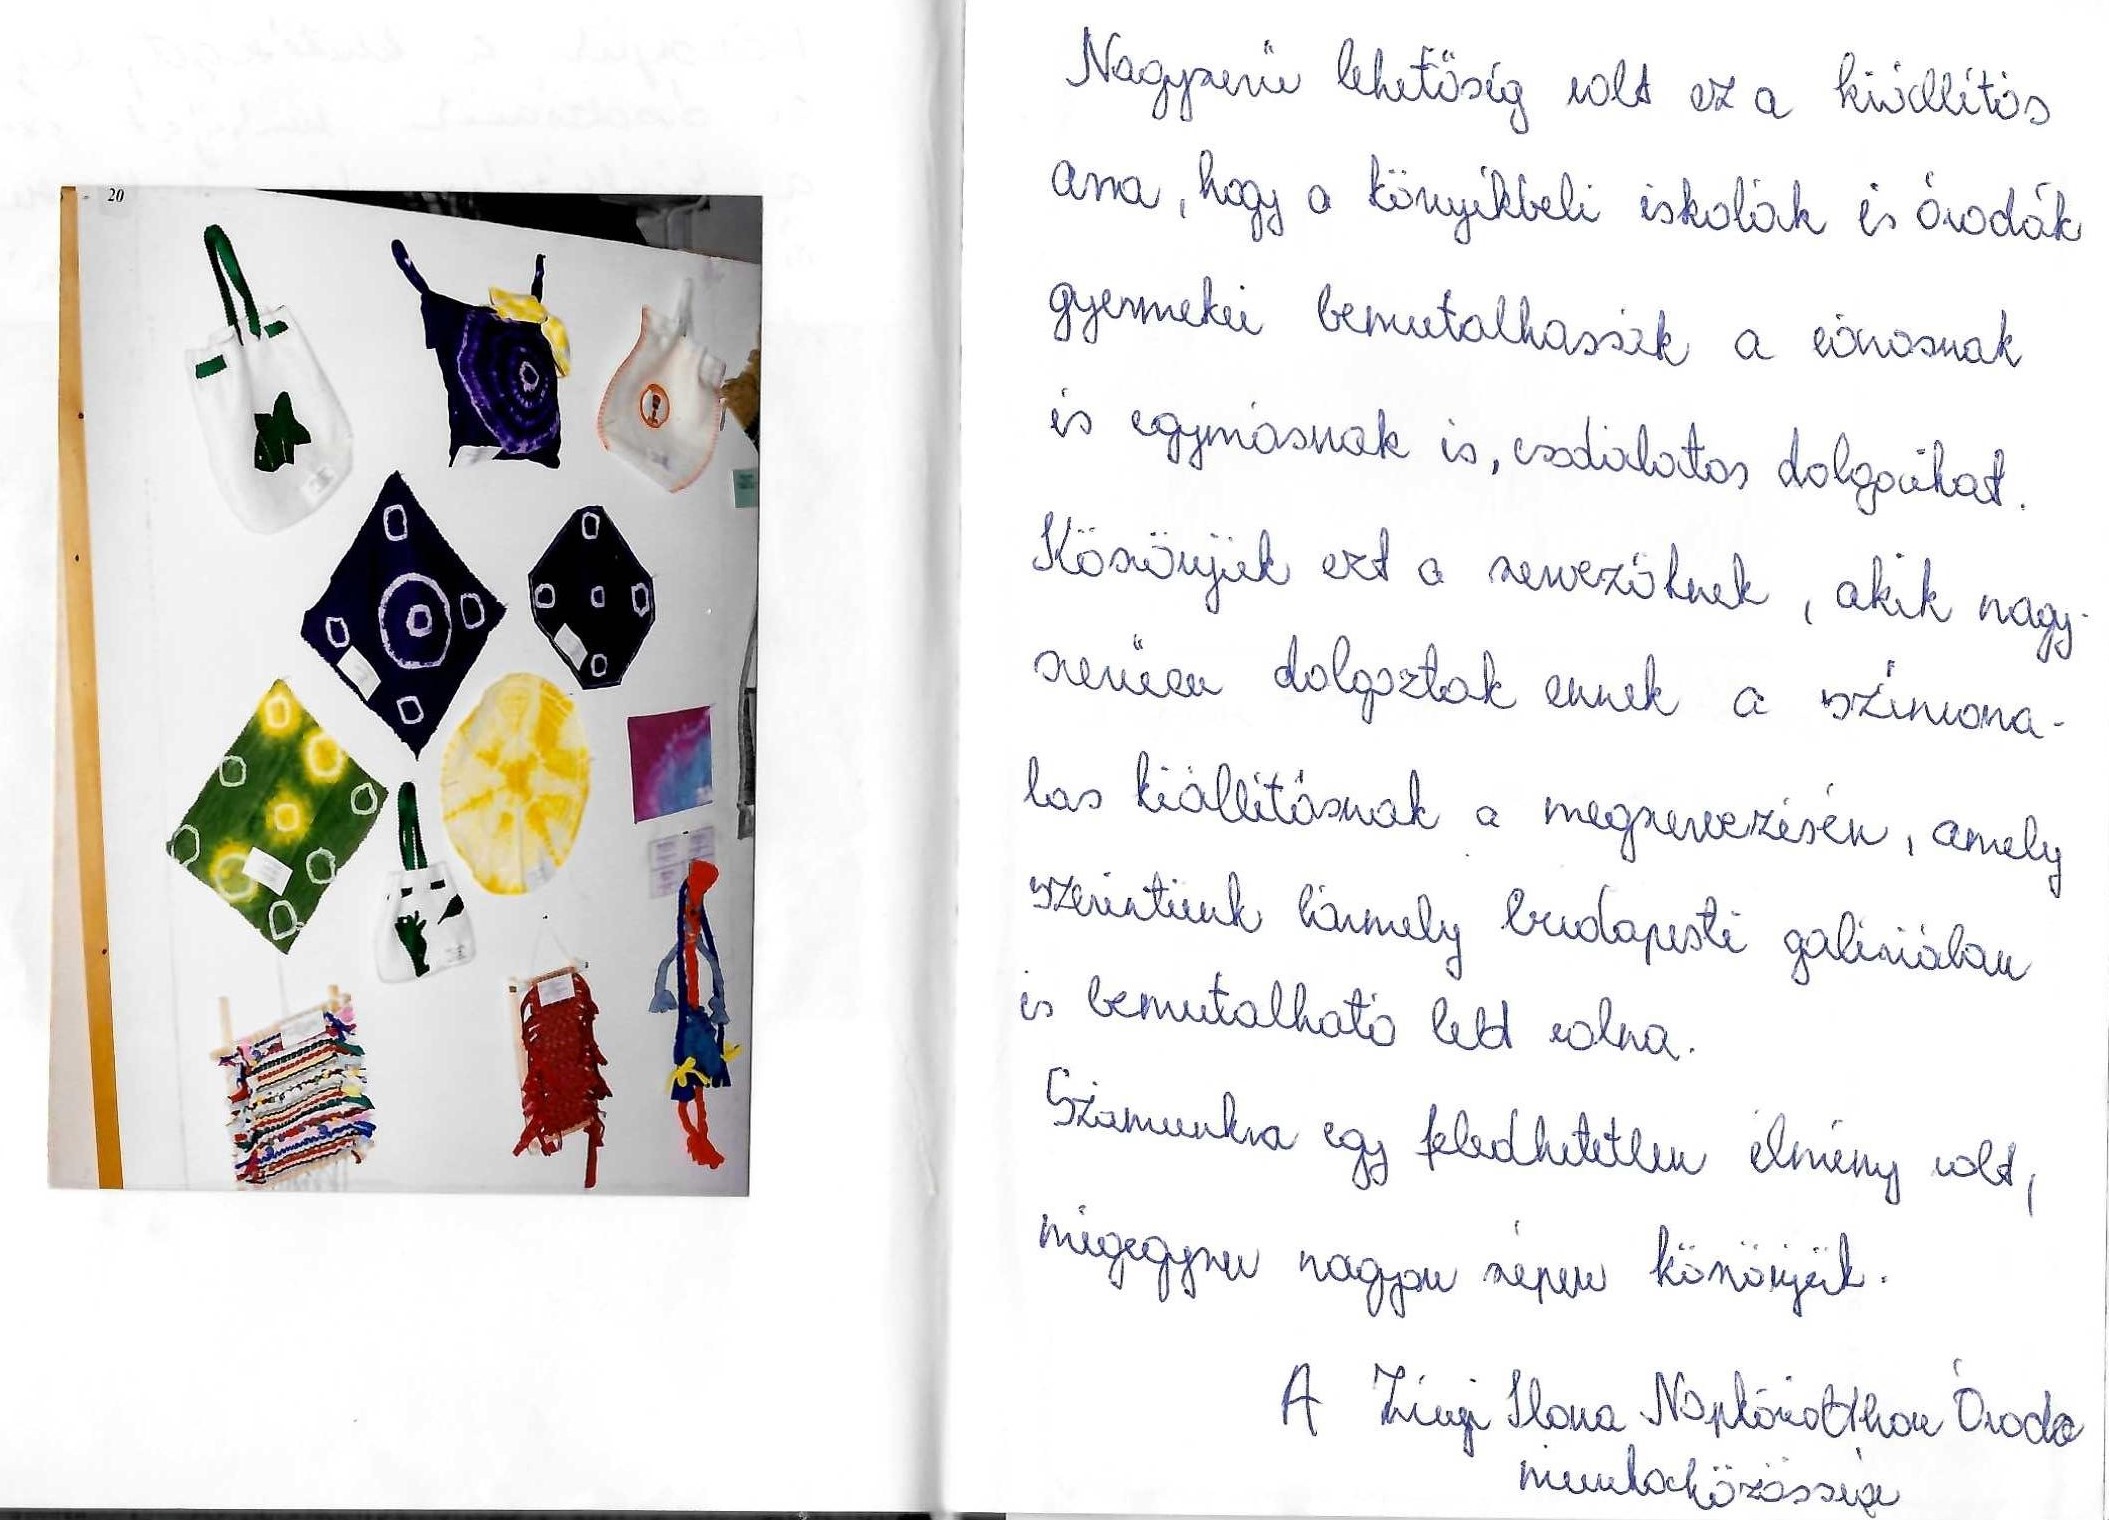 20
Nagyszerű lehetőség volt ez a kiállítás
arra, hogy a környékbeli iskolák és óvodák
gyermekei bemutathassák a városnak
és egymásnak is, csodálatos dolgaikat.
Köszönjük ezt a szervezőknek, akik nagy-
szerűen dolgoztak ennek a színvona-
las kiállításnak a megszervezésén, amely
szerintünk bármely budapesti galériában
is bemutatható lett volna.
Számunkra egy feledhetetlen élmény volt,
mégegyszer nagyon szépen köszönjük.
A Ilona Napköziotthon Óvoda
munkaközössége